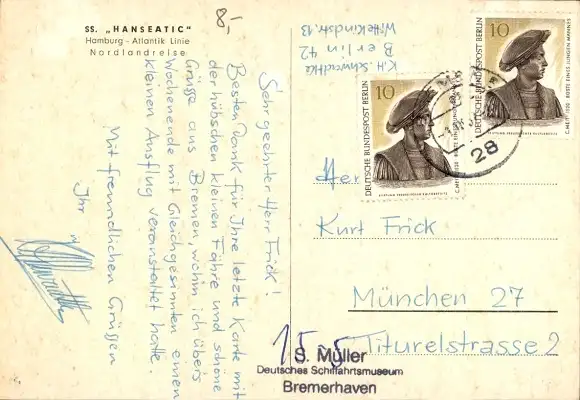 SS. „HANSEATIC"
Hamburg - Atlantik Linie
Nordlandreise
8,-
K.H. Schwadtke
Berlin 42
Wittekindstr. 13
Sehr geehrter Herr Frick!
Besten Dank für Ihre letzte Karte mit
der hübschen kleinen Fähre und schöne
Grüße aus Bremen, wohin ich übers
Wochenende mit Gleichgesinnten einen
kleinen Ausflug veranstaltet hatte.
Mit freundlichen Grüßen
Ihr
10
DEUTSCHE BUNDESPOST BERLIN
10
DEUTSCHE BUNDESPOST BERLIN
BÜSTE EINES JUNGEN MANNES
28
Herr
Kurt Frick
München 27
Titurelstrasse 2
15-5
S. Müller
Deutsches Schiffahrtsmuseum
Bremerhaven